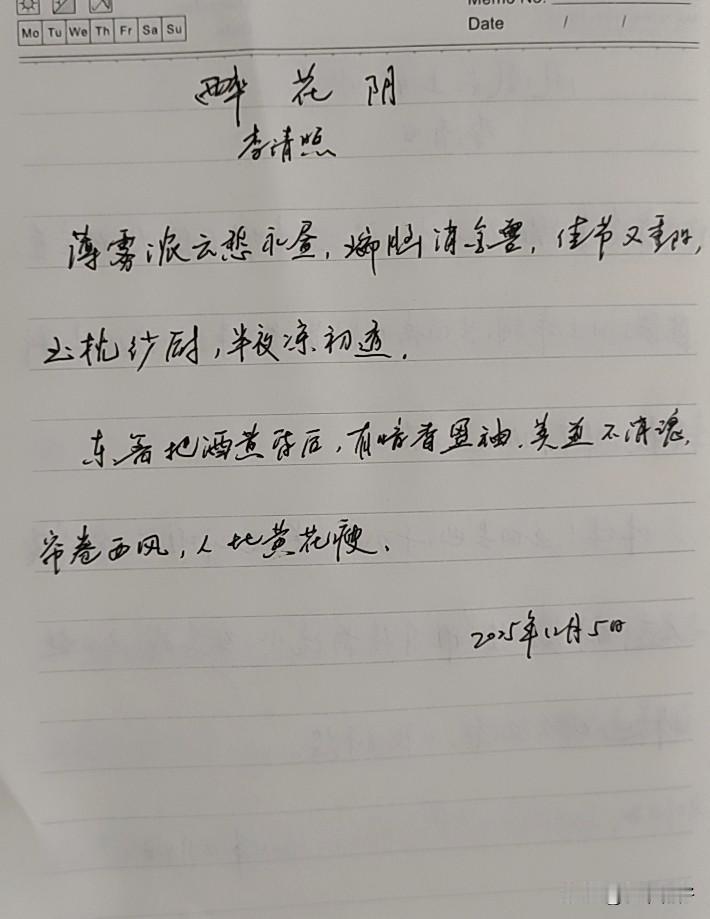 Memo No.
Mo Tu We Th Fr Sa Su
Date / /
醉花阴
李清照
薄雾浓云愁永昼,瑞脑消金兽,佳节又重阳,
玉枕纱厨,半夜凉初透.
东篱把酒黄昏后,有暗香盈袖.莫道不消魂,
帘卷西风,人比黄花瘦.
2025年12月5日